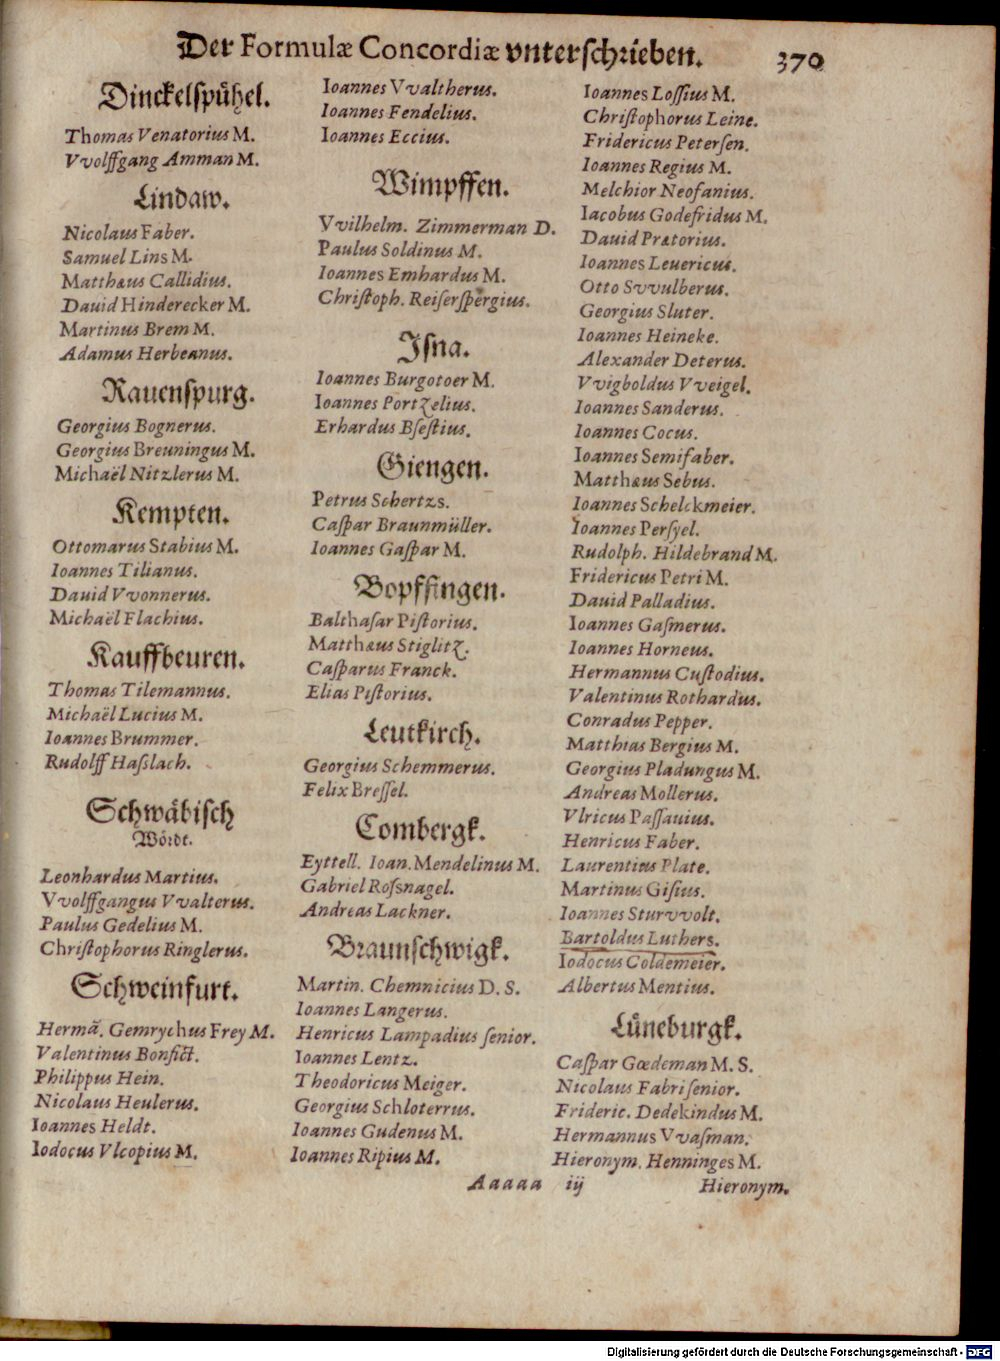 Der Formulæ Concordiæ vnterschrieben. 370
Dinckelspühel.
Thomas Venatorius M.
Vvolffgang Amman M.
Lindaw.
Nicolaus Faber.
Samuel Lins M.
Matthæus Callidius.
Dauid Hinderecker M.
Martinus Brem M.
Adamus Herbeanus.
Rauenspurg.
Georgius Bognerus.
Georgius Breuningus M.
Michaël Nitzlerus M.
Kempten.
Ottomarus Stabius M.
Ioannes Tilianus.
Dauid Vvonnerus.
Michaël Flachius.
Kauffbeuren.
Thomas Tilemannus.
Michaël Lucius M.
Ioannes Brummer.
Rudolff Haßlach.
Schwäbisch
Wördt.
Leonhardus Martius.
Vvolffgangus Vvalterus.
Paulus Gedelius M.
Christophorus Ringlerus.
Schweinfurt.
Hermã. Gemrychus Frey M.
Valentinus Bonfict.
Philippus Hein.
Nicolaus Heulerus.
Ioannes Heldt.
Iodocus Vlcopius M.
Ioannes Vvaltherus.
Ioannes Fendelius.
Ioannes Eccius.
Wimpffen.
Vvilhelm. Zimmerman D.
Paulus Soldinus M.
Ioannes Emhardus M.
Christoph. Reiserspergius.
Isna.
Ioannes Burgotoer M.
Ioannes Portzelius.
Erhardus Bsestius.
Giengen.
Petrus Schertzs.
Caspar Braunmüller.
Ioannes Gaspar M.
Bopffingen.
Balthasar Pistorius.
Matthæus Stiglitz.
Casparus Franck.
Elias Pistorius.
Leutkirch.
Georgius Schemmerus.
Felix Bressel.
Combergk.
Eyttell. Ioan. Mendelinus M.
Gabriel Rossnagel.
Andreas Lackner.
Braunschwigk.
Martin. Chemnicius D. S.
Ioannes Langerus.
Henricus Lampadius senior.
Ioannes Lentz.
Theodoricus Meiger.
Georgius Schloterrus.
Ioannes Gudenus M.
Ioannes Ripius M.
Ioannes Lossius M.
Christophorus Leine.
Fridericus Petersen.
Ioannes Regius M.
Melchior Neofanius.
Iacobus Godefridus M.
Dauid Prætorius.
Ioannes Leuericus.
Otto Svvulberus.
Georgius Sluter.
Ioannes Heineke.
Alexander Deterus.
Vvigboldus Vveigel.
Ioannes Sanderus.
Ioannes Cocus.
Ioannes Semifaber.
Matthæus Sebus.
Ioannes Schelckmeier.
Ioannes Persyel.
Rudolph. Hildebrand M.
Fridericus Petri M.
Dauid Palladius.
Ioannes Gasmerus.
Ioannes Horneus.
Hermannus Custodius.
Valentinus Rothardus.
Conradus Pepper.
Matthias Bergius M.
Georgius Pladungus M.
Andreas Mollerus.
Vlricus Passauius.
Henricus Faber.
Laurentius Plate.
Martinus Gisius.
Ioannes Sturvvolt.
Bartoldus Luthers.
Iodocus Coldemeier.
Albertus Mentius.
Lüneburgk.
Caspar Gœdeman M. S.
Nicolaus Fabri senior.
Frideric. Dedekindus M.
Hermannus Vvasman.
Hieronym. Henninges M.
Aaaaa iij Hieronym.
Digitalisierung gefördert durch die Deutsche Forschungsgemeinschaft - DFG